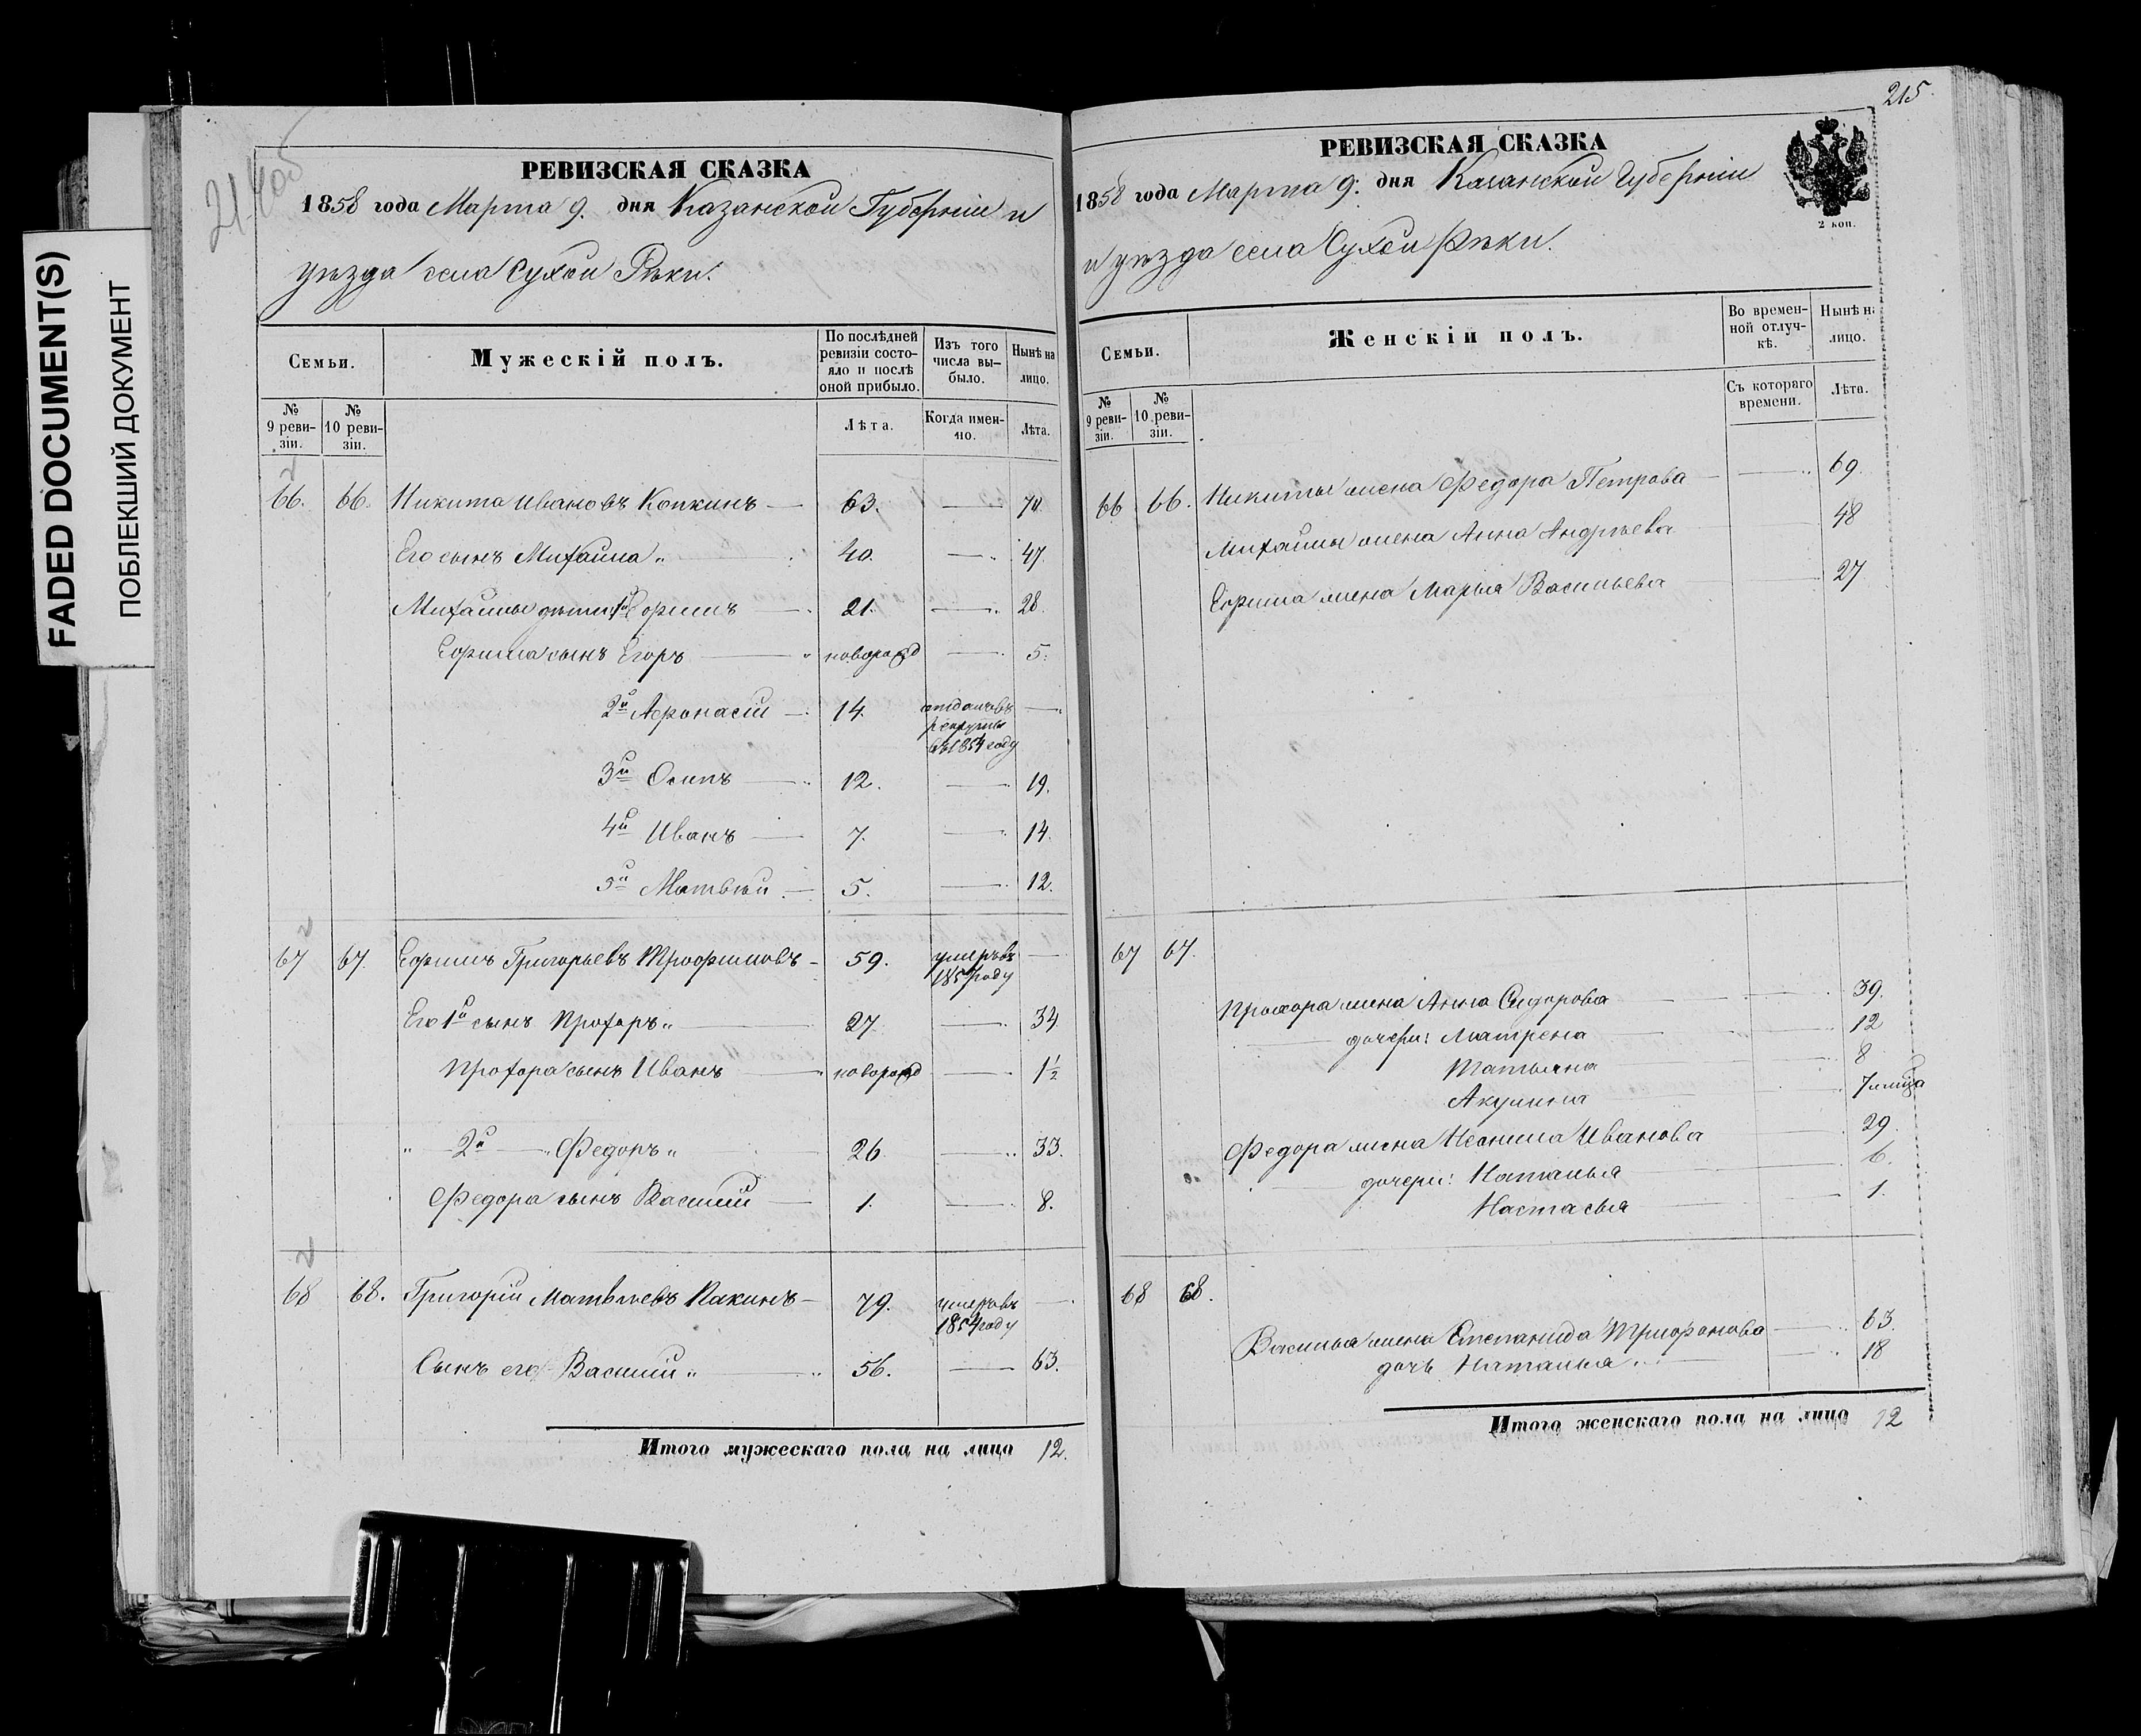 FADED DOCUMENT(S)
ПОБЛЕКШИЙ ДОКУМЕНТ
РЕВИЗСКАЯ СКАЗКА
1858 года Марта 9. дня Казанской Губернiи и
уѣзда села Сухой Рѣки.
Семьи.
Мужескiй полъ.
По послѣдней ревизiи состояло и послѣ оной прибыло.
Изъ того числа выбыло.
Нынѣ на лицо.
№ 9 ревизiи.
№ 10 ревизiи.
Лѣта.
Когда именно.
Лѣта.
66. 66. Никита Ивановъ Копкинъ 63. 70
Его сынъ Михайла 40. 47.
Михайлы дѣти 1й Ефимъ 21. 28.
Ефима сынъ Егоръ новорожд 5.
2й Афонасiй 14. отданъ въ рекруты въ 1854 году
3й Осипъ 12. 19.
4й Иванъ 7. 14.
5й Матвѣй 5. 12.
67 67. Ефимъ Григорьевъ Трофимовъ 59. умеръ въ году
Его 1й сынъ Прохоръ 27 34
Прохора сынъ Иванъ новорожд 1½
2й Федоръ 26 33.
Федора сынъ Василiй 1. 8.
68 68. Григорiй Матвѣевъ 79. умеръ въ 1854 году
Сынъ его Василiй 56. 63.
Итого мужескаго пола на лицо 12.
215
РЕВИЗСКАЯ СКАЗКА
1858 года Марта 9. дня Казанской Губернiи
и уѣзда села Сухой Рѣки.
2 коп.
Семьи.
Женскiй полъ.
Во временной отлучкѣ.
Нынѣ на лицо.
№ 9 ревизiи.
№ 10 ревизiи.
Съ котораго времени.
Лѣта.
66 66. Никиты жена Федора Петрова 69.
Михайлы жена Анна Андрѣева 48
Ефима жена Марья Васильева 27
67 67.
Прохора жена Анна Сидорова 39.
дочери: Матрена 12
Татьяна 8
Акулина 7
Федора жена Иванова 29.
дочери: Наталья 6.
Настасья 1.
68 68.
Василья жена Степанида Трифонова 63.
дочь Наталья 18
Итого женскаго пола на лицо 12